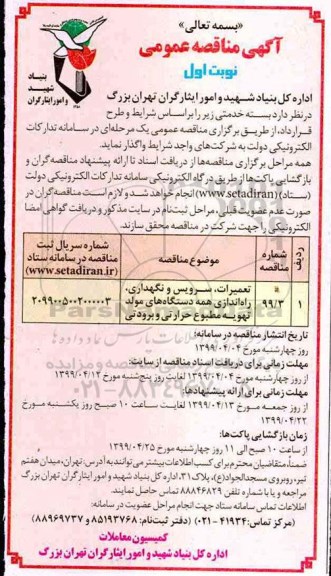 «بسمه تعالی»
آگهی مناقصه عمومی
نوبت اول
بنیاد
شهید
و امور ایثارگران
اداره کل بنیاد شهید و امور ایثارگران تهران بزرگ
در نظر دارد بسته خدمتی زیر را براساس شرایط و طرح
قرارداد، از طریق برگزاری مناقصه عمومی یک مرحله‌ای در سامانه تدارکات
الکترونیکی دولت به شرکت‌های واجد شرایط واگذار نماید.
همه مراحل برگزاری مناقصه‌ها از دریافت اسناد تا ارائه پیشنهاد مناقصه‌گران و
بازگشایی پاکت‌ها از طریق درگاه الکترونیکی سامانه تدارکات الکترونیکی دولت
(ستاد) (www.setadiran) انجام خواهد شد و لازم است مناقصه‌گران در
صورت عدم عضویت قبلی، مراحل ثبت‌نام در سایت مذکور و دریافت گواهی امضا
الکترونیکی را جهت شرکت در مناقصه محقق سازند.
ردیف
شماره مناقصه
موضوع مناقصه
شماره سریال ثبت مناقصه در سامانه ستاد (www.setadiran.ir)
۱
۹۹/۳
تعمیرات، سرویس و نگهداری، راه‌اندازی همه دستگاه‌های مولد تهویه مطبوع حرارتی و برودتی
۲۰۹۹۰۰۵۰۰۲۰۰۰۰۰۳
تاریخ انتشار مناقصه در سامانه:
روز چهارشنبه مورخ ۱۳۹۹/۰۴/۰۴
مهلت زمانی برای دریافت اسناد مناقصه از سایت:
از روز چهارشنبه مورخ ۱۳۹۹/۰۴/۰۴ لغایت روز پنج‌شنبه مورخ ۱۳۹۹/۰۴/۱۲
مهلت زمانی برای ارائه پیشنهادها:
از روز جمعه مورخ ۱۳۹۹/۰۴/۱۳ لغایت ساعت ۱۰ صبح روز یکشنبه مورخ
۱۳۹۹/۰۴/۲۲
زمان بازگشایی پاکت‌ها:
از ساعت ۱۰ صبح الی ۱۱ روز چهارشنبه مورخ ۱۳۹۹/۰۴/۲۵
ضمناً، متقاضیان محترم برای کسب اطلاعات بیشتر می‌توانند به آدرس: تهران، میدان هفتم
تیر، روبروی مسجدالجواد(ع)، پلاک ۳۱، اداره کل بنیاد شهید و امور ایثارگران تهران بزرگ
مراجعه و یا با شماره تلفن ۸۸۸۴۶۸۲۹ تماس حاصل نمایند.
اطلاعات تماس سامانه ستاد جهت انجام مراحل عضویت در سامانه:
(مرکز تماس: ۴۱۹۳۴-۰۲۱) (دفتر ثبت‌نام: ۸۵۱۹۳۷۶۸ و ۸۸۹۶۹۷۳۷)
کمیسیون معاملات
اداره کل بنیاد شهید و امور ایثارگران تهران بزرگ